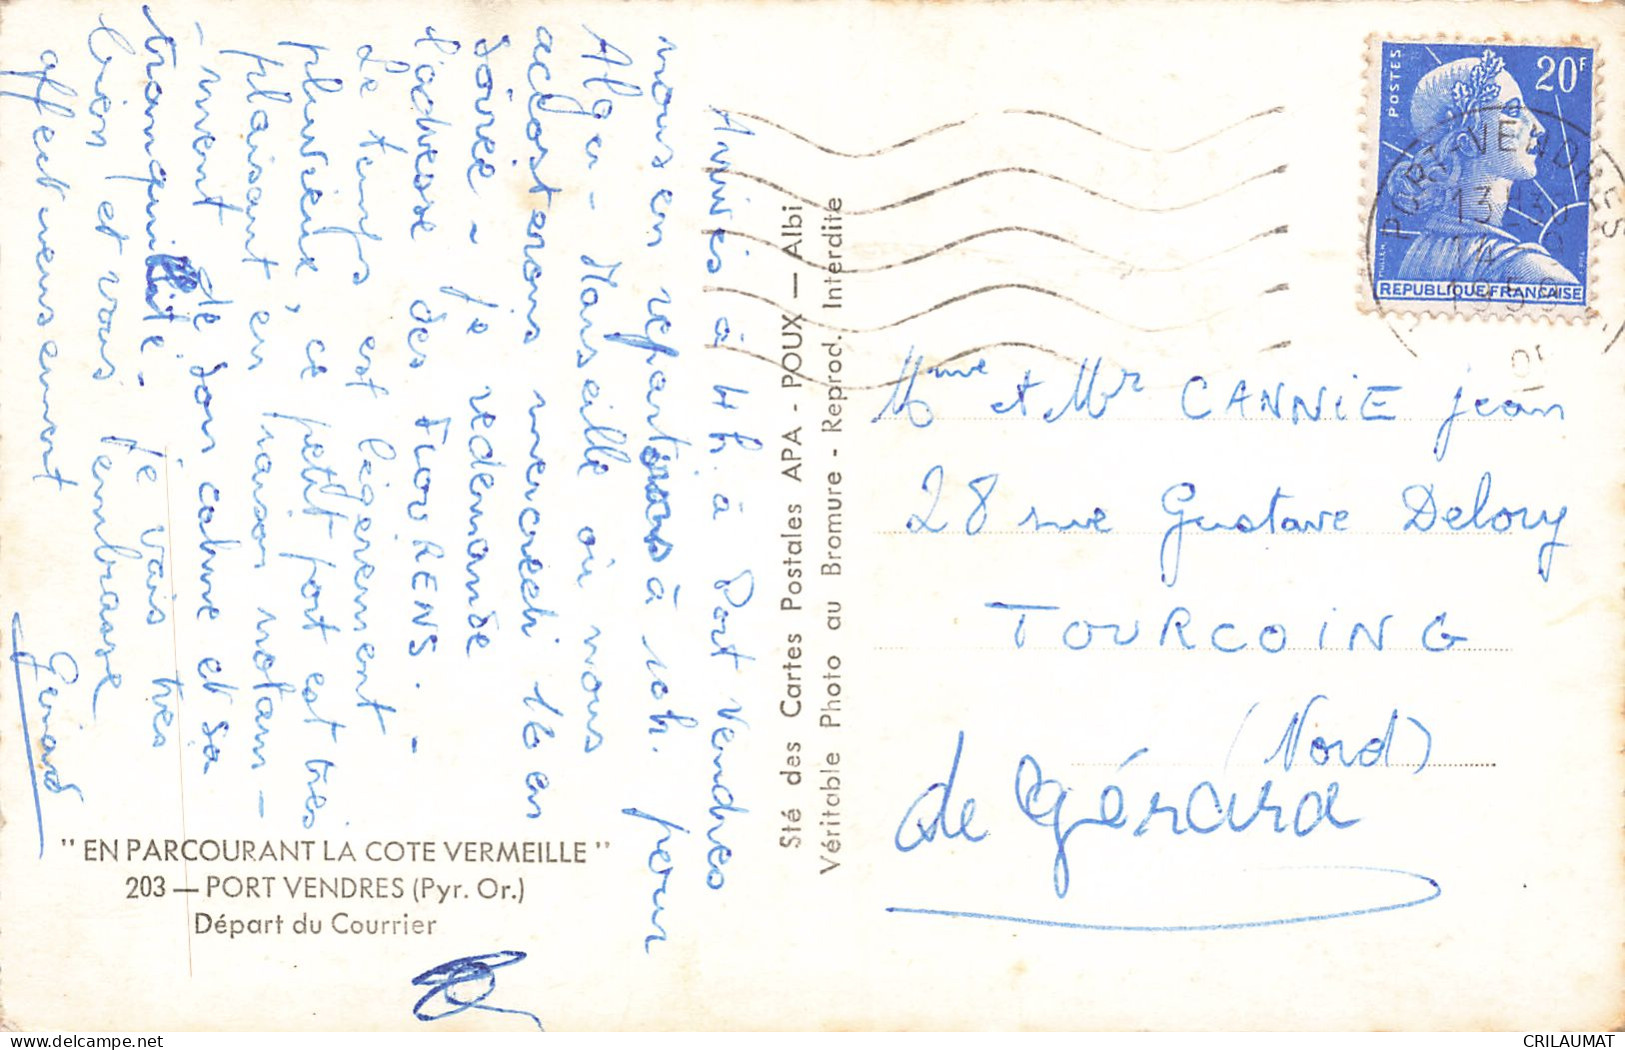 Arrivés à 4h. à Port Vendres
nous en repartirons à 10h. pour
Alger - Marseille où nous
accosterons mercredi 16 en
soirée - je redemande
l'adresse des FLOURENS.
Le temps est légèrement
pluvieux, ce petit port est très
plaisant en raison notam-
-ment de son calme et sa
tranquillité. je vais très
bien et vous embrasse
affectueusement
Gérard
"EN PARCOURANT LA COTE VERMEILLE"
203 — PORT VENDRES (Pyr. Or.)
Départ du Courrier
Sté des Cartes Postales APA - POUX — Albi
Véritable Photo au Bromure - Reprod. Interdite
POSTES
20F
MULLER
REPUBLIQUE FRANÇAISE
PORT-VENDRES
13 H
14
Mme et Mr CANNIE jean
28 rue Gustave Delory
TOURCOING
(Nord)
de Gérard
CRILAUMAT